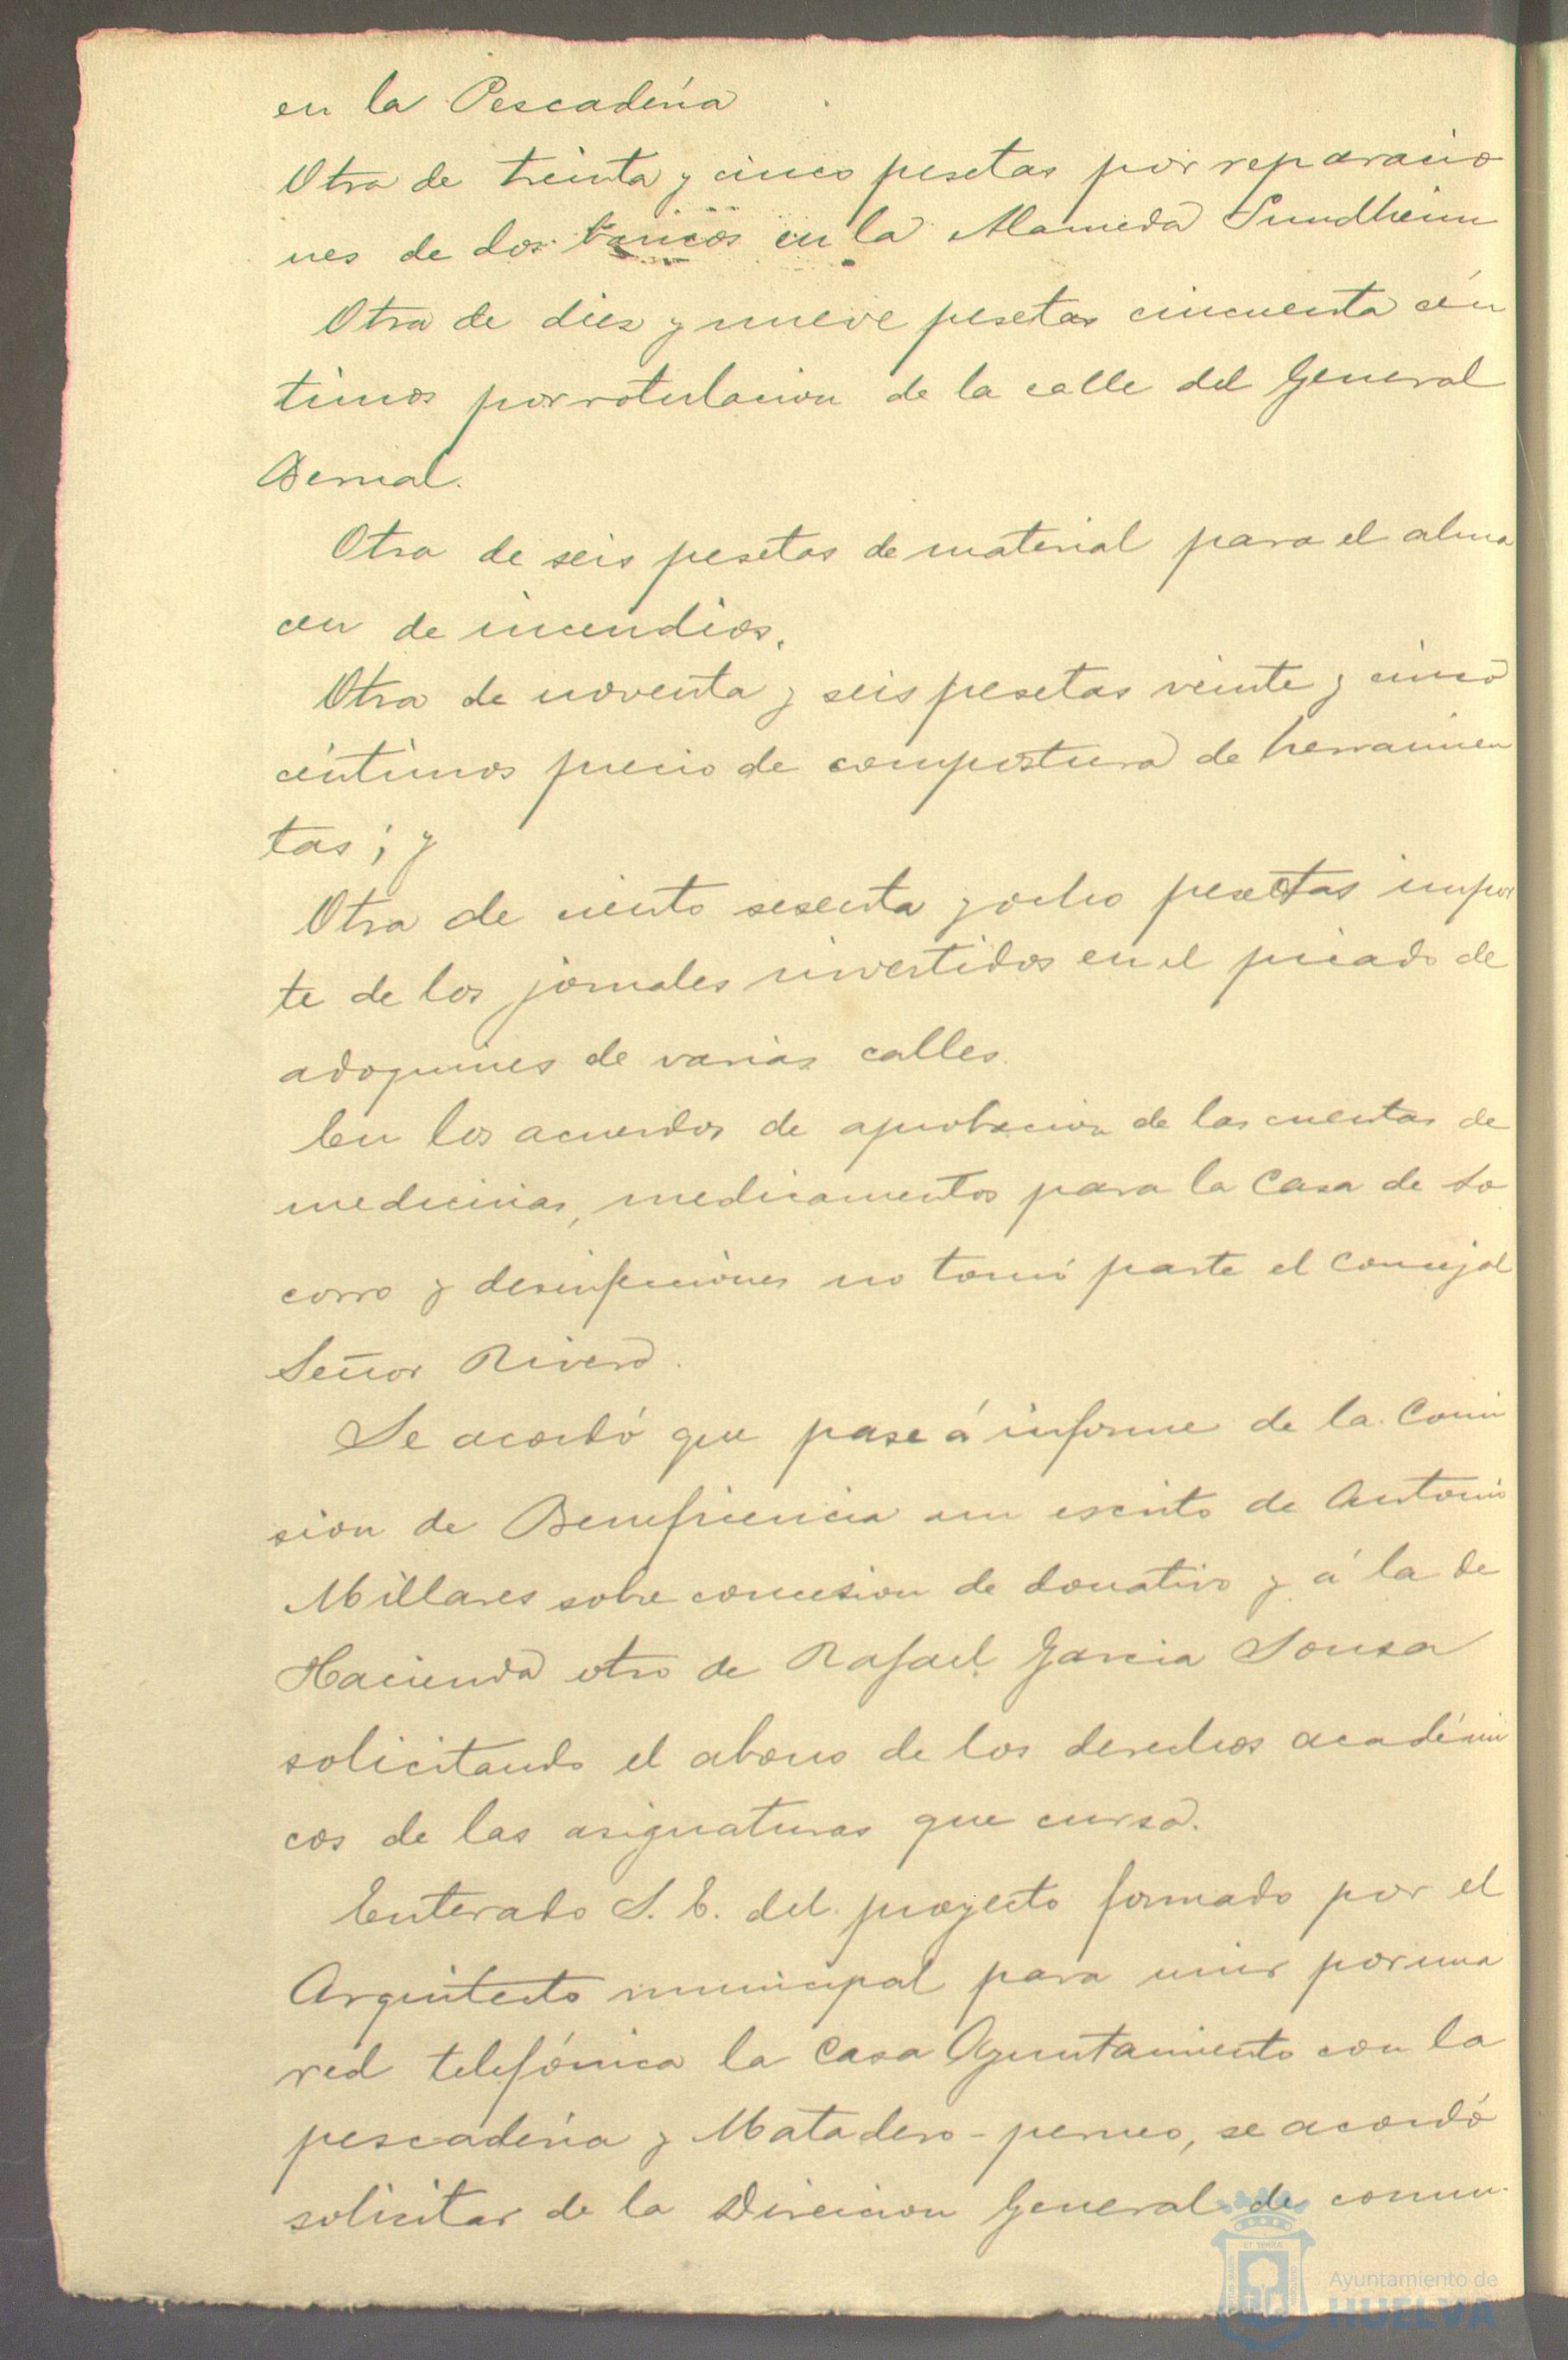 en la Pescadería
Otra de treinta y cinco pesetas por reparacio
nes de dos bancos en la Alameda Sundheim
Otra de diez y nueve pesetas cincuenta cén
timos por rotulacion de la calle del General
Bernal.
Otra de seis pesetas de material para el alma
cen de incendios.
Otra de noventa y seis pesetas veinte y cinco
céntimos precio de compostura de herramien
tas; y
Otra de ciento sesenta y ocho pesetas impor
te de los jornales invertidos en el picado de
adoquines de varias calles.
En los acuerdos de aprobacion de las cuentas de
medicinas, medicamentos para la Casa de So
corro y desinfecciones no tomó parte el Concejal
Señor Rivero.
Se acordó que pase á informe de la Comi
sion de Beneficencia un escrito de Antonio
Millares sobre concesion de donativo y á la de
Hacienda otro de Rafael Garcia Sousa
solicitando el abono de los derechos académi
cos de las asignaturas que cursa.
Enterado S. E. del proyecto formado por el
Arquitecto municipal para unir por una
red telefónica la Casa Ayuntamiento con la
pescadería y Matadero-perneo, se acordó
solicitar de la Direccion General de comu-
Ayuntamiento de
HUELVA